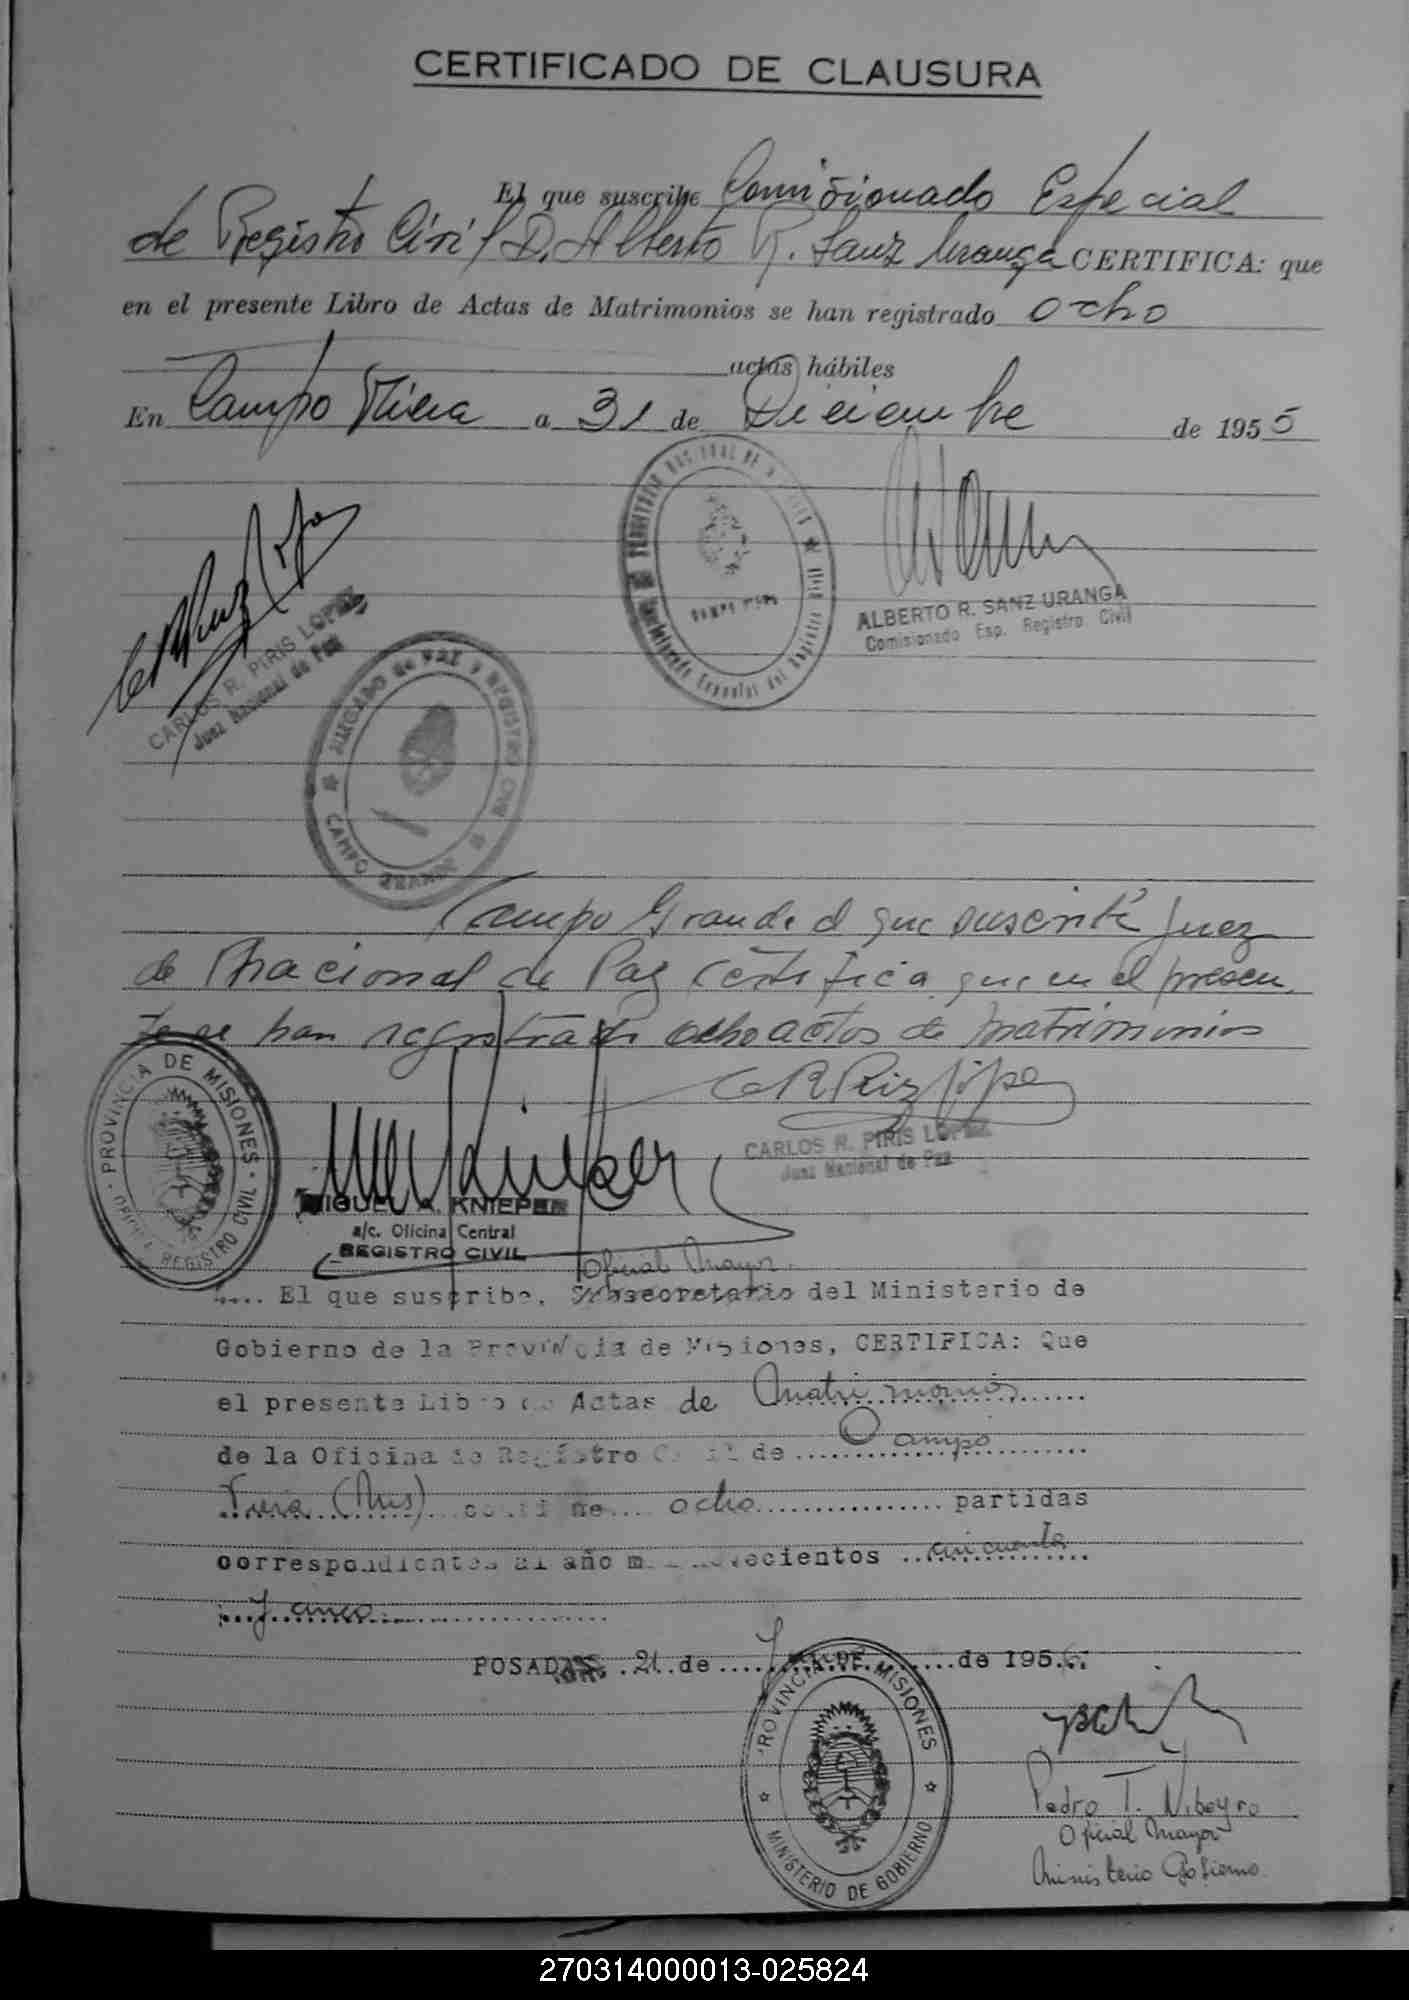 CERTIFICADO DE CLAUSURA
El que suscribe Comisionado Especial
de Registro Civil D. Alberto R. Sanz Uranga CERTIFICA: que
en el presente Libro de Actas de Matrimonios se han registrado ocho
actas hábiles
En Campo Viera a 31 de Diciembre de 1955
CAMPO VIERA
ALBERTO R. SANZ URANGA
Comisionado Esp. Registro Civil
CARLOS R. PIRIS LOPEZ
Juez Nacional de Paz
JUZGADO de PAZ y REGISTRO
CAMPO
Campo Grande el que suscribe Juez
de Nacional de Paz certifica que en el presen
te se han registrado ocho actos de matrimonios
CARLOS R. PIRIS LOPEZ
Juez Nacional de Paz
PROVINCIA DE MISIONES
REGISTRO CIVIL
MIGUEL A. KNIEPER
a/c. Oficina Central
REGISTRO CIVIL
Oficial Mayor
.... El que suscribe, Subsecretario del Ministerio de
Gobierno de la Provincia de Misiones, CERTIFICA: Que
el presente Libro de Actas de Matrimonios
de la Oficina de Registro Civil de Campo
Viera (Mis) contiene ocho partidas
correspondientes al año mil novecientos cincuenta
y cinco
POSADAS 21 de de 195
PROVINCIA DE MISIONES
MINISTERIO DE GOBIERNO
Pedro T. Niboyro
Oficial Mayor
Ministerio Gobierno
270314000013-025824